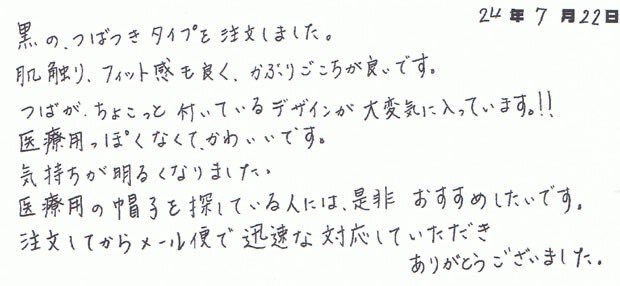 24年7月22日
黒の、つばつきタイプを注文しました。
肌触り、フィット感も良く、かぶりごこちが良いです。
つばが、ちょこっと付いているデザインが大変気に入っています。!!
医療用っぽくなくて、かわいいです。
気持ちが明るくなりました。
医療用の帽子を探している人には、是非おすすめしたいです。
注文してからメール便で迅速な対応していただき
ありがとうございました。